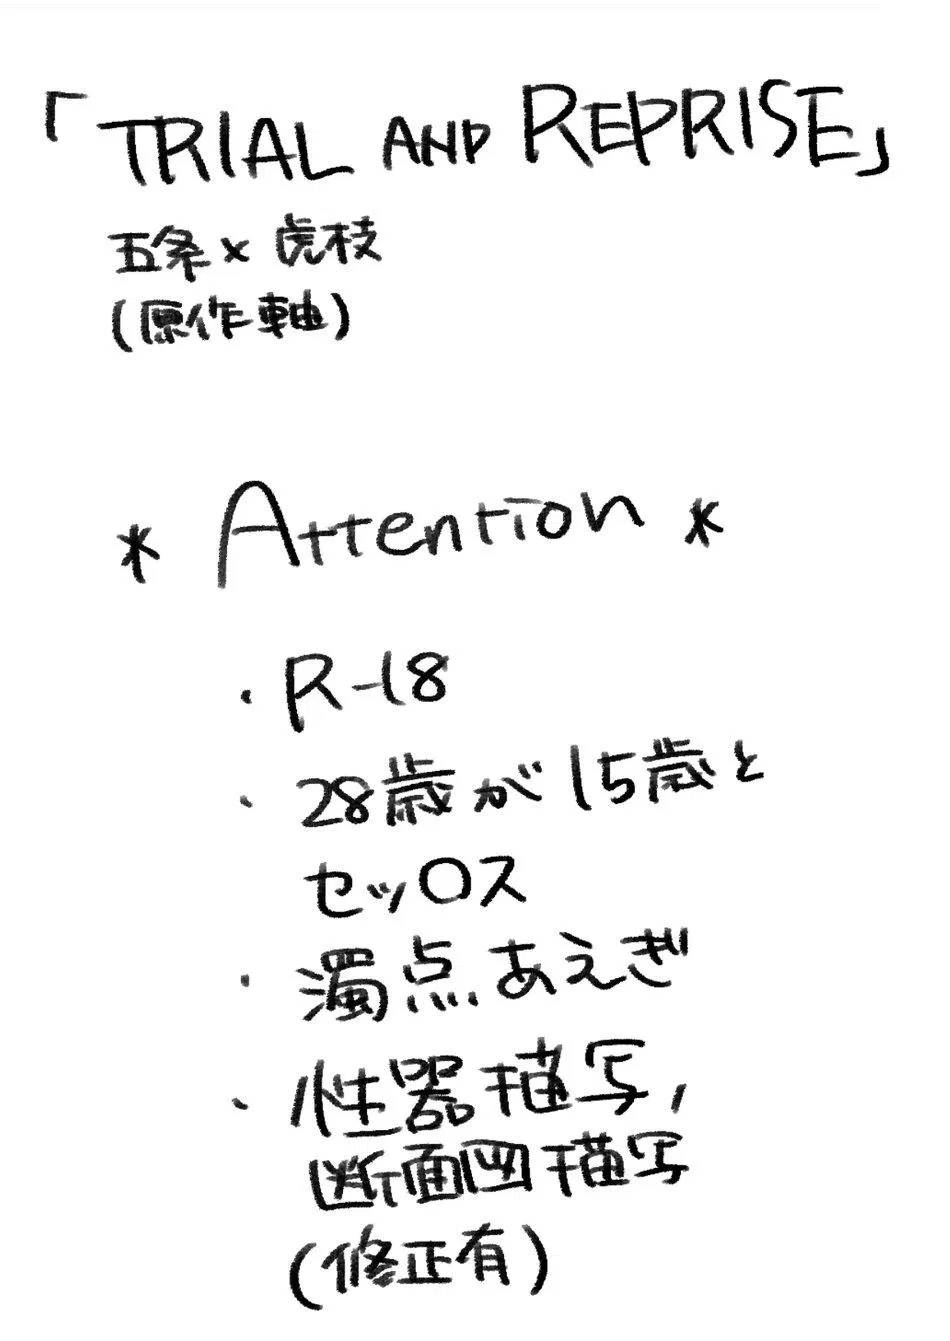 「TRIAL AND REPRISE」
五条×虎杖
(原作軸)
* Attention *
・R-18
・28歳が15歳と
セッ〇ス
・濁点あえぎ
・性器描写,
断面図描写
(修正有)